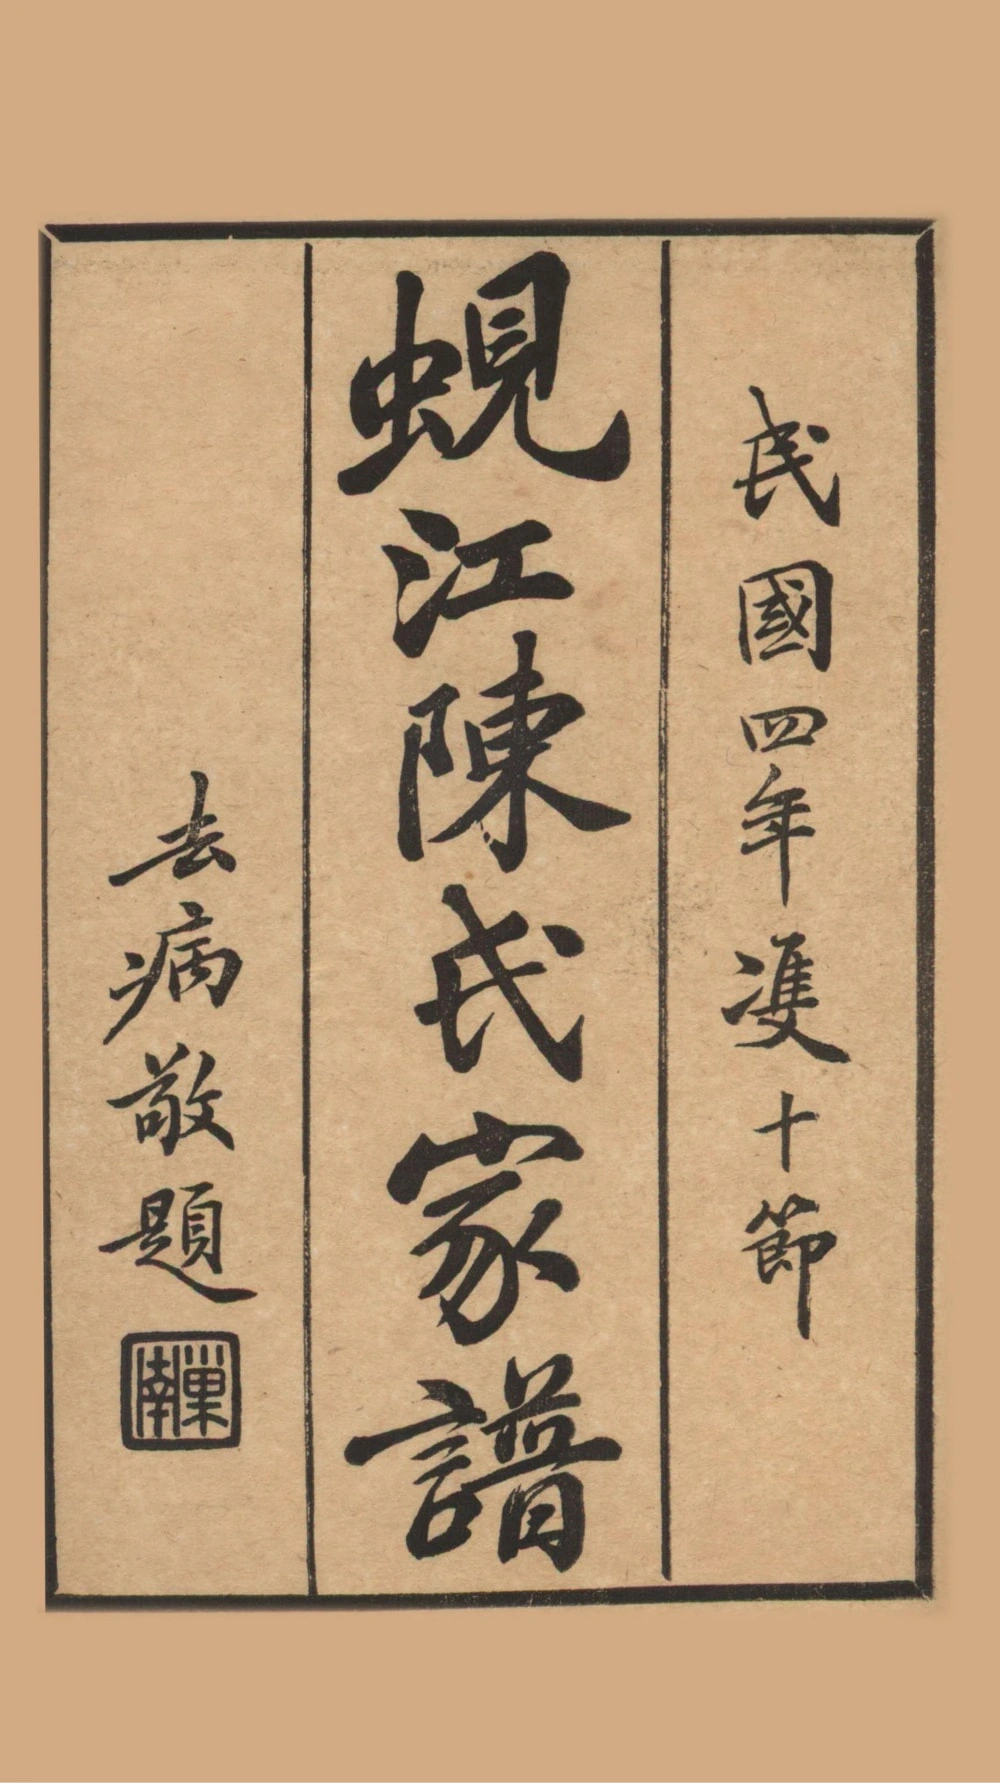 民國四年雙十節
蜆江陳氏家譜
去病敬題
巢南